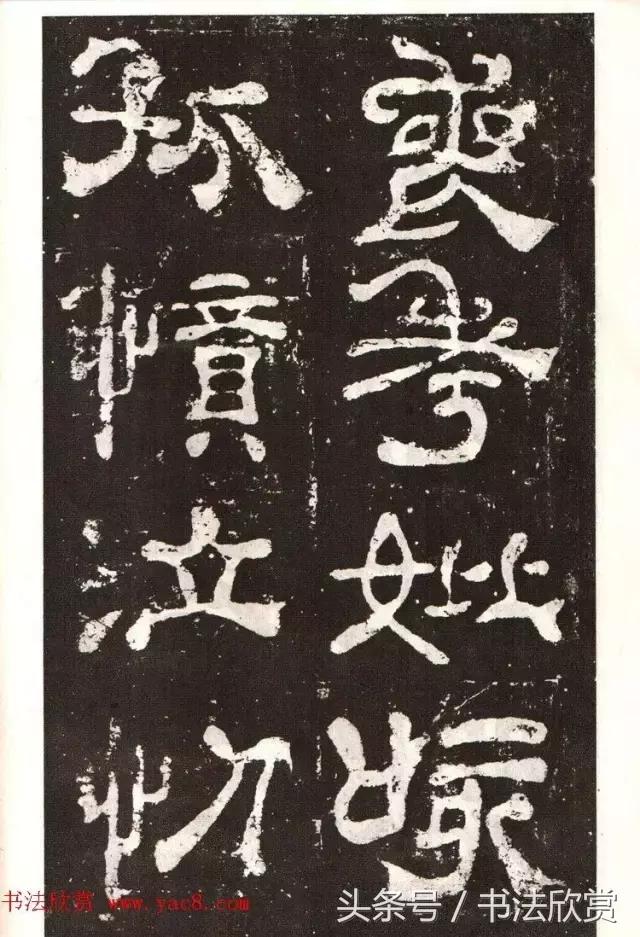 喪考妣咳
孤憤泣忉
书法欣赏 www.yac8.com
头条号 / 书法欣赏